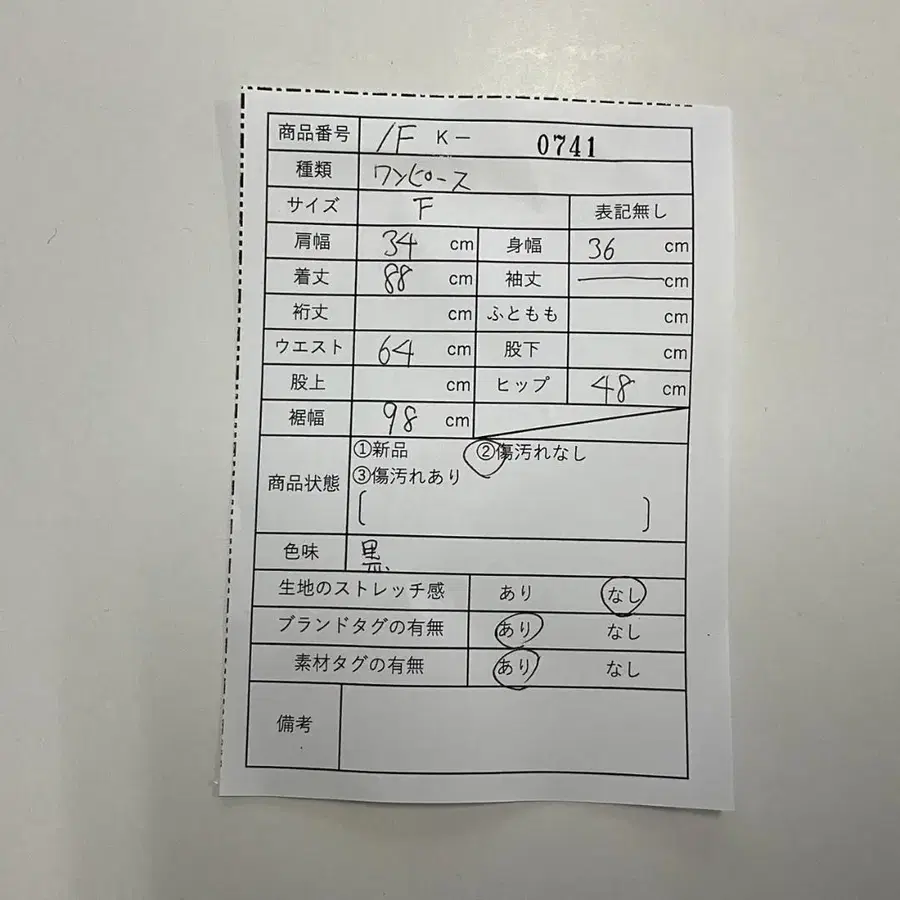 商品番号 /F K- 0741
種類 ワンピース
サイズ F 表記無し
肩幅 34 cm 身幅 36 cm
着丈 88 cm 袖丈 cm
裄丈 cm ふともも cm
ウエスト 64 cm 股下 cm
股上 cm ヒップ 48 cm
裾幅 98 cm
商品状態 ①新品 ②傷汚れなし
③傷汚れあり
[ ]
色味 黒
生地のストレッチ感 あり なし
ブランドタグの有無 あり なし
素材タグの有無 あり なし
備考